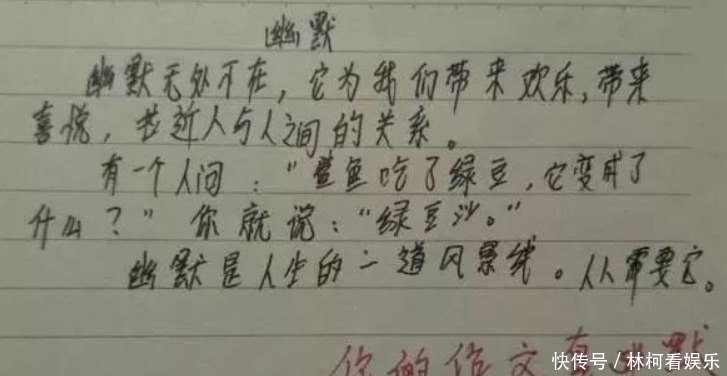 幽默
幽默无处不在，它为我们带来欢乐，带来
喜悦，拉近人与人之间的关系。
有一个人问：“鲨鱼吃了绿豆，它变成了
什么？” 你就说：“绿豆沙。”
幽默是人生的一道风景线。人人需要它。
你的作文有幽默
快传号／林柯看娱乐